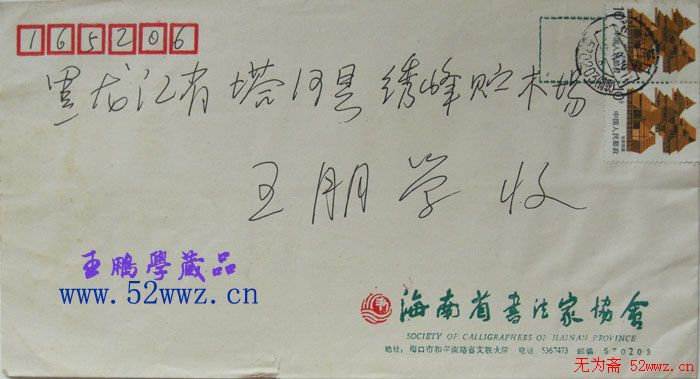 165206
黑龙江省塔河县绣峰贮木场
王朋学 收
王鹏學藏品
www.52wwz.cn
海南省书法家协會
SOCIETY OF CALLIGRAPHERS OF HAINAN PROVINCE
地址：海口市和平南路省文联大院 电话：5367473 邮编：570203
中国人民邮政
无为斋 52wwz.cn